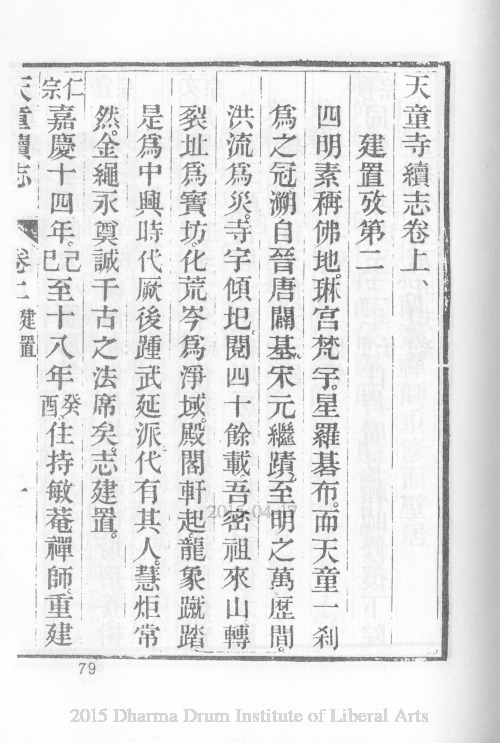 天童寺續志卷上、
建置攷第二
四明素稱佛地。琳宮梵宇。星羅碁布。而天童一刹
爲之冠。溯自晉唐闢基。宋元繼蹟。至明之萬歷間。
洪流爲災。寺宇傾圯。閱四十餘載。吾密祖來山。轉
裂址爲寶坊。化荒岑爲淨域。殿閣軒起。龍象蹴踏
是爲中興時代厥後踵武延派代有其人。慧炬常
然。金繩永奠誠千古之法席矣。志建置。
仁宗嘉慶十四年。己巳至十八年癸酉住持敏菴禪師。重建
天童續志 卷二 建置 一
79
2015.04.17
2015 Dharma Drum Institute of Liberal Arts